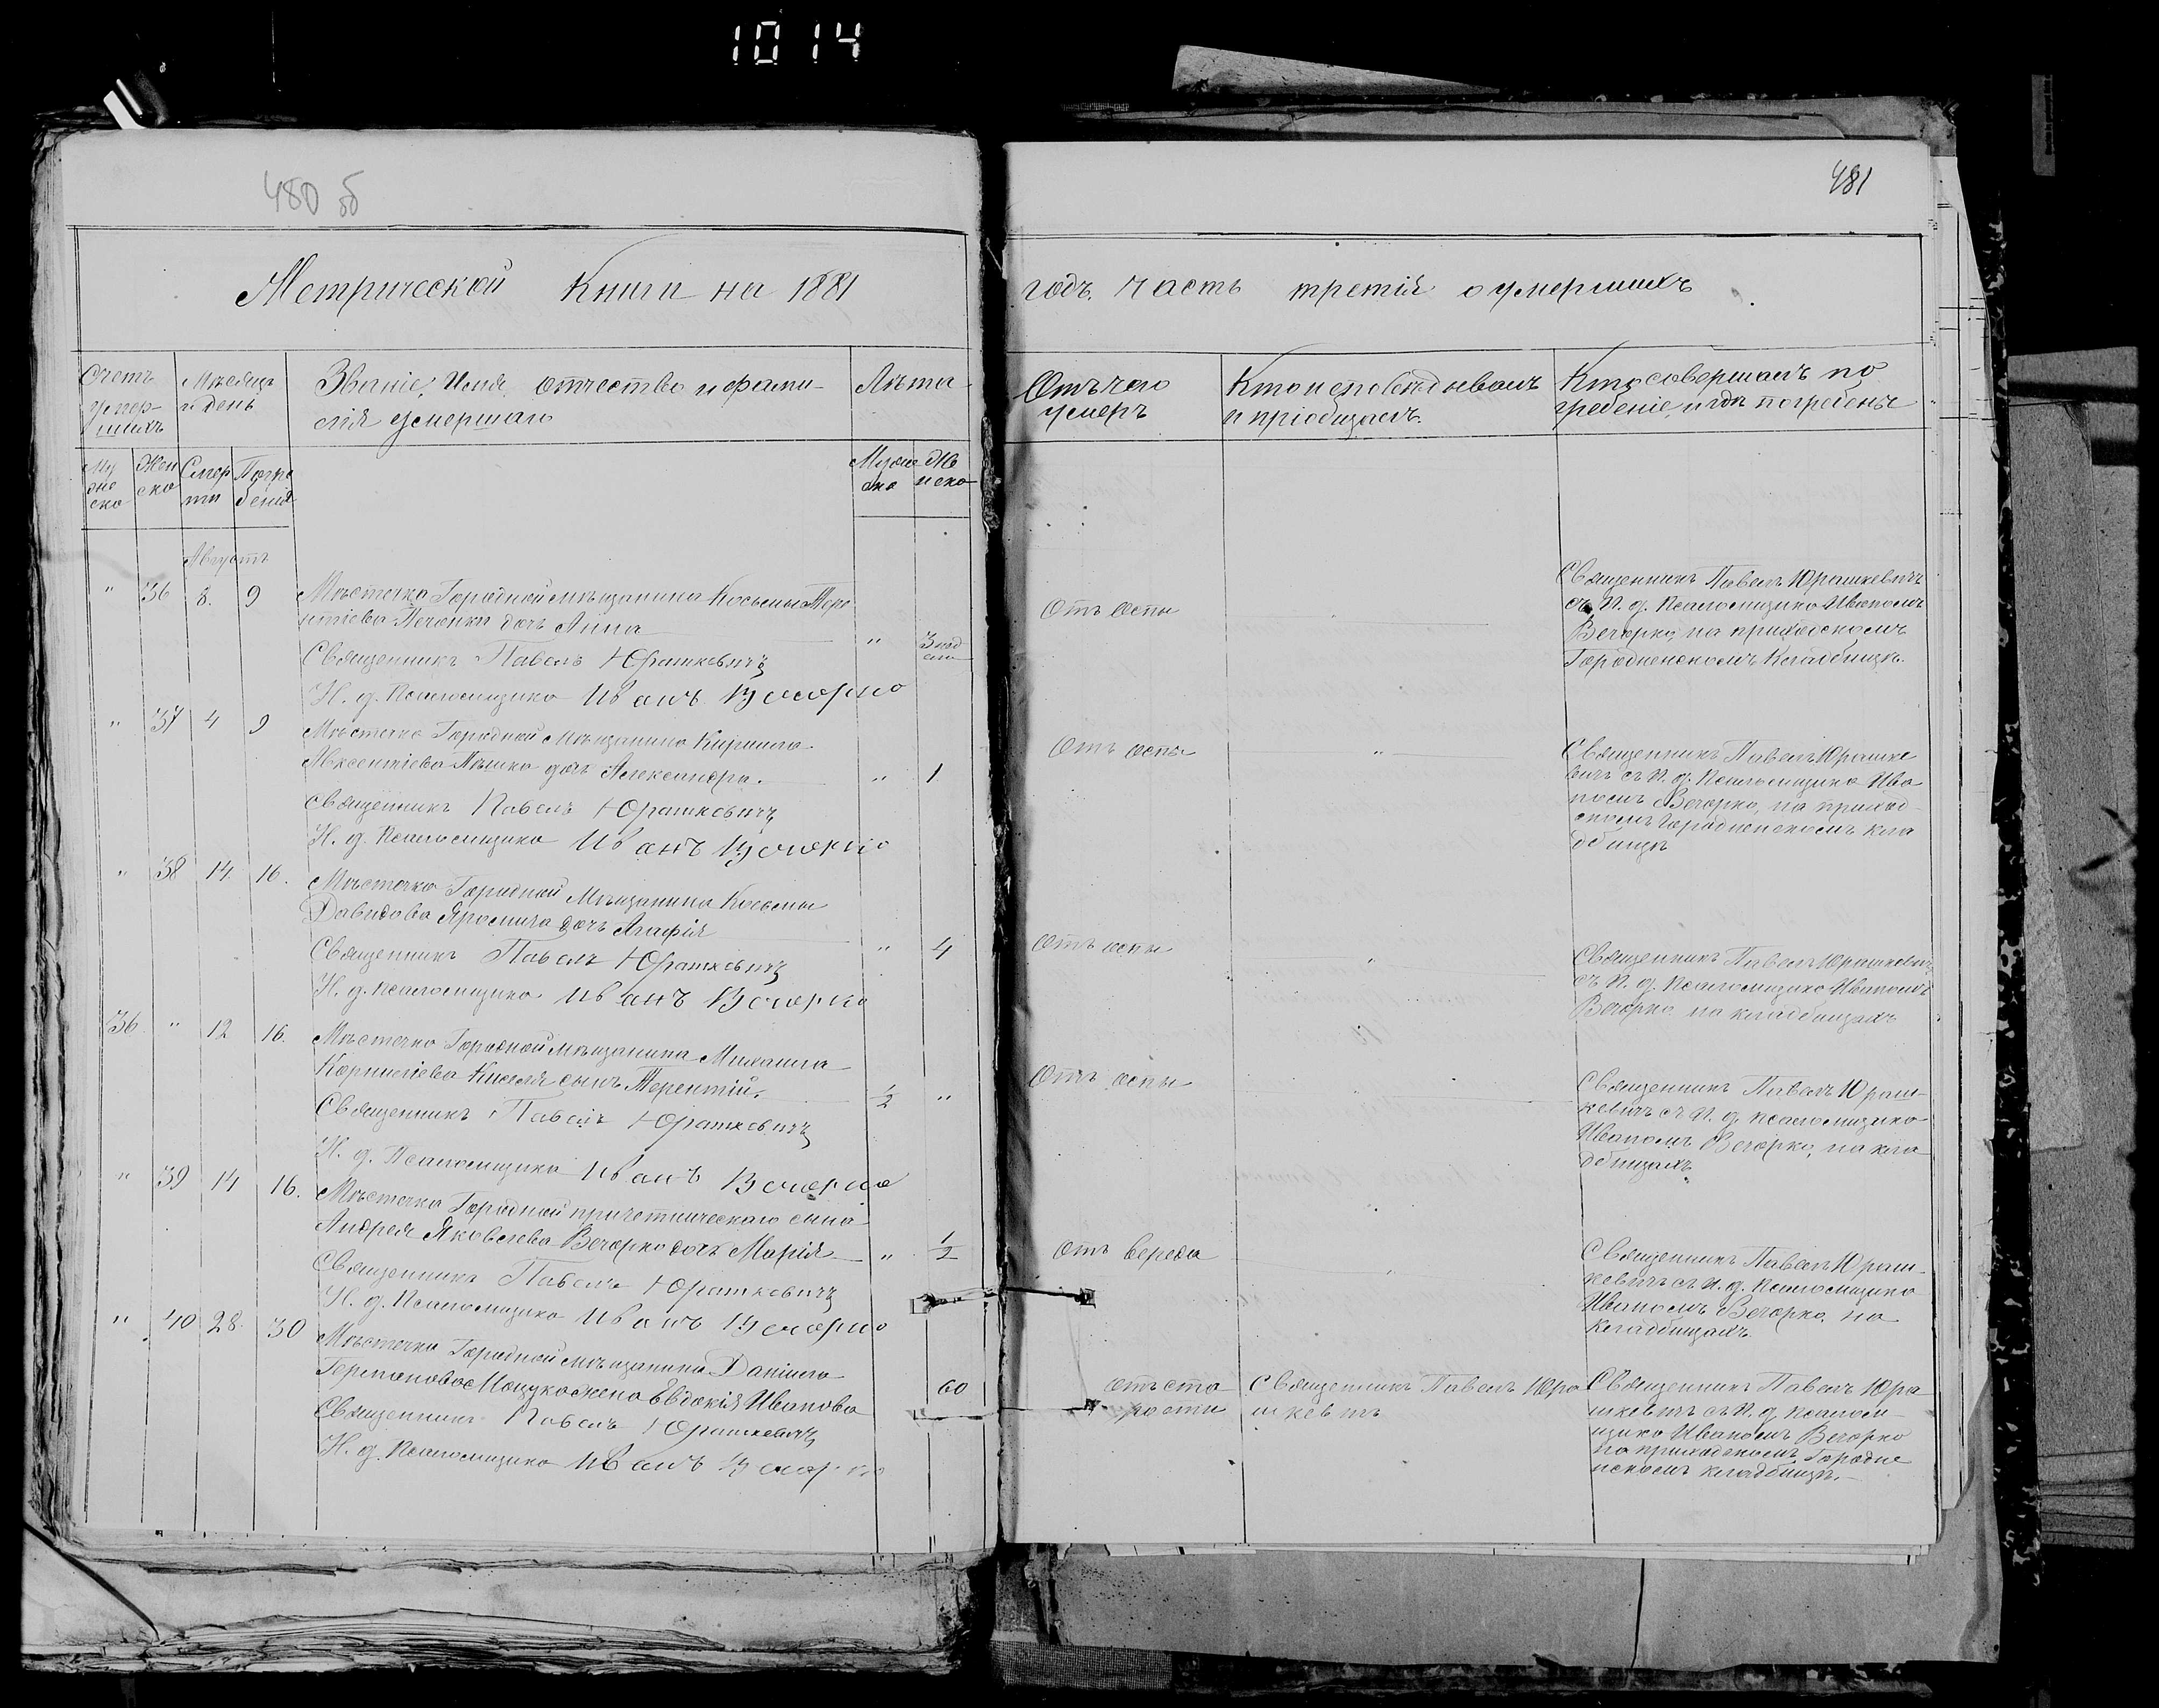 1014
480 об
481
Метрической Книги на 1881
годъ. Часть третія о умершихъ
Счетъ умер-шихъ
Мѣсяцъ и день
Званіе, Имя, отчество и фами-
лія умершаго
Лѣта
Отъ чего
умеръ
Кто исповѣдывалъ
и пріобщалъ.
Кто совершалъ по
гребеніе и гдѣ погребены
Му
жес
ско
Жен
ско
Смер
ти
Погре
бенія
Муже
ско
Же
нско
Августъ
" 36 8. 9
Мѣстечка Городной мѣщанина Косьмы Тере
нтіева Печонки дочь Анна
" 3 нед
ели
Священникъ Павелъ Юрашкевичъ
И. д. Псаломщика Иванъ Вечорко
Отъ оспы
"
Священникъ Павелъ Юрашкевичъ
съ И. д. Псаломщика Иваномъ
Вечорко, на приходскомъ
Городненскомъ Кладбищѣ.
" 37 4 9
Мѣстечка Городной Мѣщанина Кирилла
Авксентіева Пѣшко дочь Александра.
" 1
Священникъ Павелъ Юрашкевичъ
И. д. Псаломщика Иванъ Вечорко
Отъ оспы
"
Священникъ Павелъ Юрашке
вичъ съ И. д. Псаломщика Ива
номъ Вечорко, на приход
скомъ Городненскомъ кла
дбищѣ
" 38 14. 16.
Мѣстечка Городной Мѣщанина Косьмы
Давидова Яромича дочь Агафія
" 4
Священникъ Павелъ Юрашкевичъ
И. д. псаломщика Иванъ Вечорко
Отъ оспы
"
Священникъ Павелъ Юрашкевичъ
съ И. д. Псаломщика Иваномъ
Вечорко на кладбищахъ
36 " 12 16.
Мѣстечка Городной мѣщанина Михаила
Корнилiева Киселя сынъ Терентій.
1/2 "
Священникъ Павелъ Юрашкевичъ
И. д. Псаломщика Иванъ Вечорко
Отъ оспы
Священникъ Павелъ Юраш-
кевичъ съ И. д. псаломщика
Иваномъ Вечорко, на кла
дбищахъ
" 39 14 16.
Мѣстечка Городной причетническаго сына
Андрея Яковлева Вечорко дочь Марія
" 1/2
Священникъ Павелъ Юрашкевичъ
И. д. Псаломщика Иванъ Вечорко
Отъ вереда
"
Священникъ Павелъ Юраш-
кевичъ съ И. д. Псаломщика
Иваномъ Вечорко, на
Кладбищахъ.
" 40 28. 30
Мѣстечка Городной мѣщанина Даніила
Германова жена Евдокія Иванова
60
Священникъ Павелъ Юрашкевичъ
И. д. Псаломщика Иванъ Вечорко
отъ ста
рости
Священникъ Павелъ Юра
шкевичъ
Священникъ Павелъ Юра
шкевичъ съ И. д. псалом-
щика Иваномъ Вечорко
на приходскомъ Городне
нскомъ кладбищѣ.